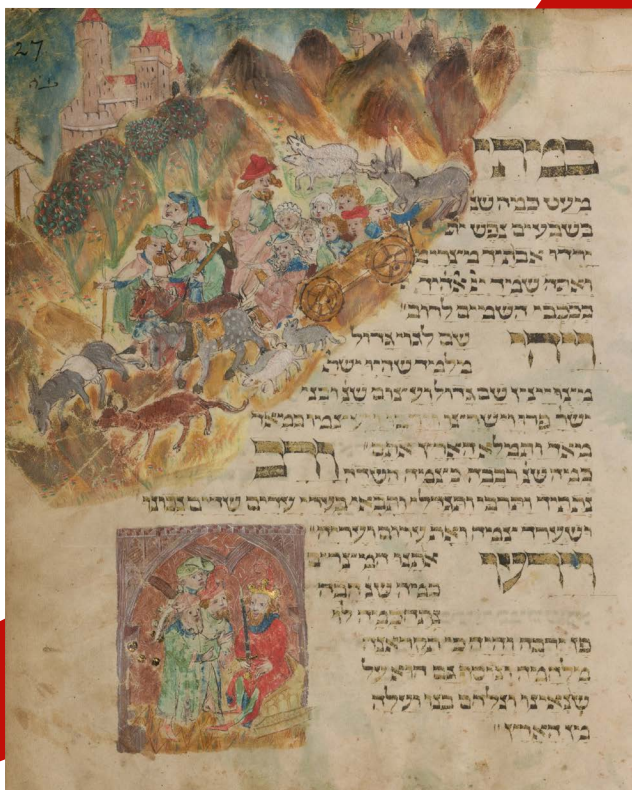 27
במתי
מעט כמה שנ
בשבעים נפש
ירדו אבתיך מצרימה
ועתה שמיך יי אלהיך
כככבי השמים לרוב
ויהי שם לגוי גדול
מלמד שהיו ישר
מצויינין שם גדול ועצום שנ ובני
ישר פרו וישרצו וירבו ויעצמו במאד
מאד ותמלא הארץ אתם
ורב
כמה שנ רבבה כצמח השדה
נתתיך ותרבי ותגדלי ותבאי בעדי עדיים שדיים נכונו
ושערך צמח ואת ערום ועריה
וירעו אתנו המצרים
כמה שנ הבה
נתחכמה לו
פן ירבה והיה כי תקראנה
מלחמה ונוסף גם הוא על
שנאינו ונלחם בנו ועלה
מן הארץ